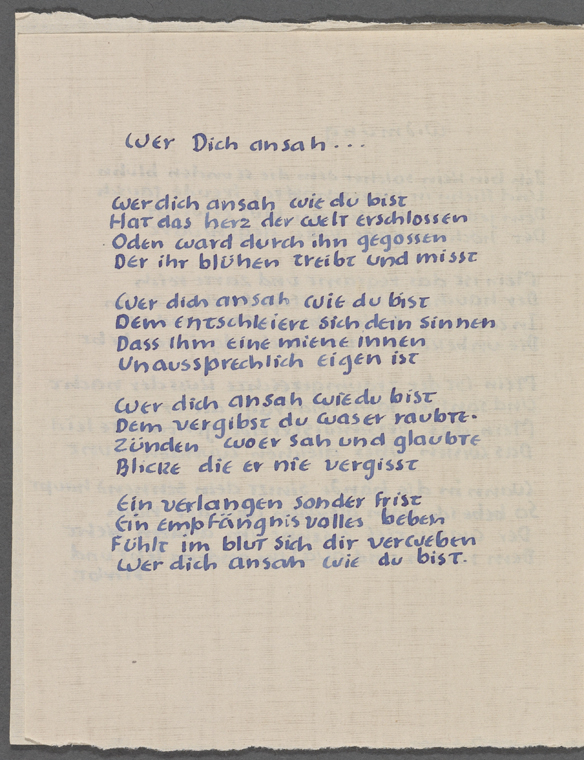 Wer Dich ansah...
Wer dich ansah wie du bist
Hat das herz der welt erschlossen
Oden ward durch ihn gegossen
Der ihr blühen treibt und misst
Wer dich ansah wie du bist
Dem entschleiert sich dein sinnen
Dass Ihm eine miene innen
Unaussprechlich eigen ist
Wer dich ansah wie du bist
Dem vergibst du was er raubte.
Zünden wo er sah und glaubte
Blicke die er nie vergisst
Ein verlangen sonder frist
Ein empfängnisvolles beben
Fühlt im blut sich dir verweben
Wer dich ansah wie du bist.